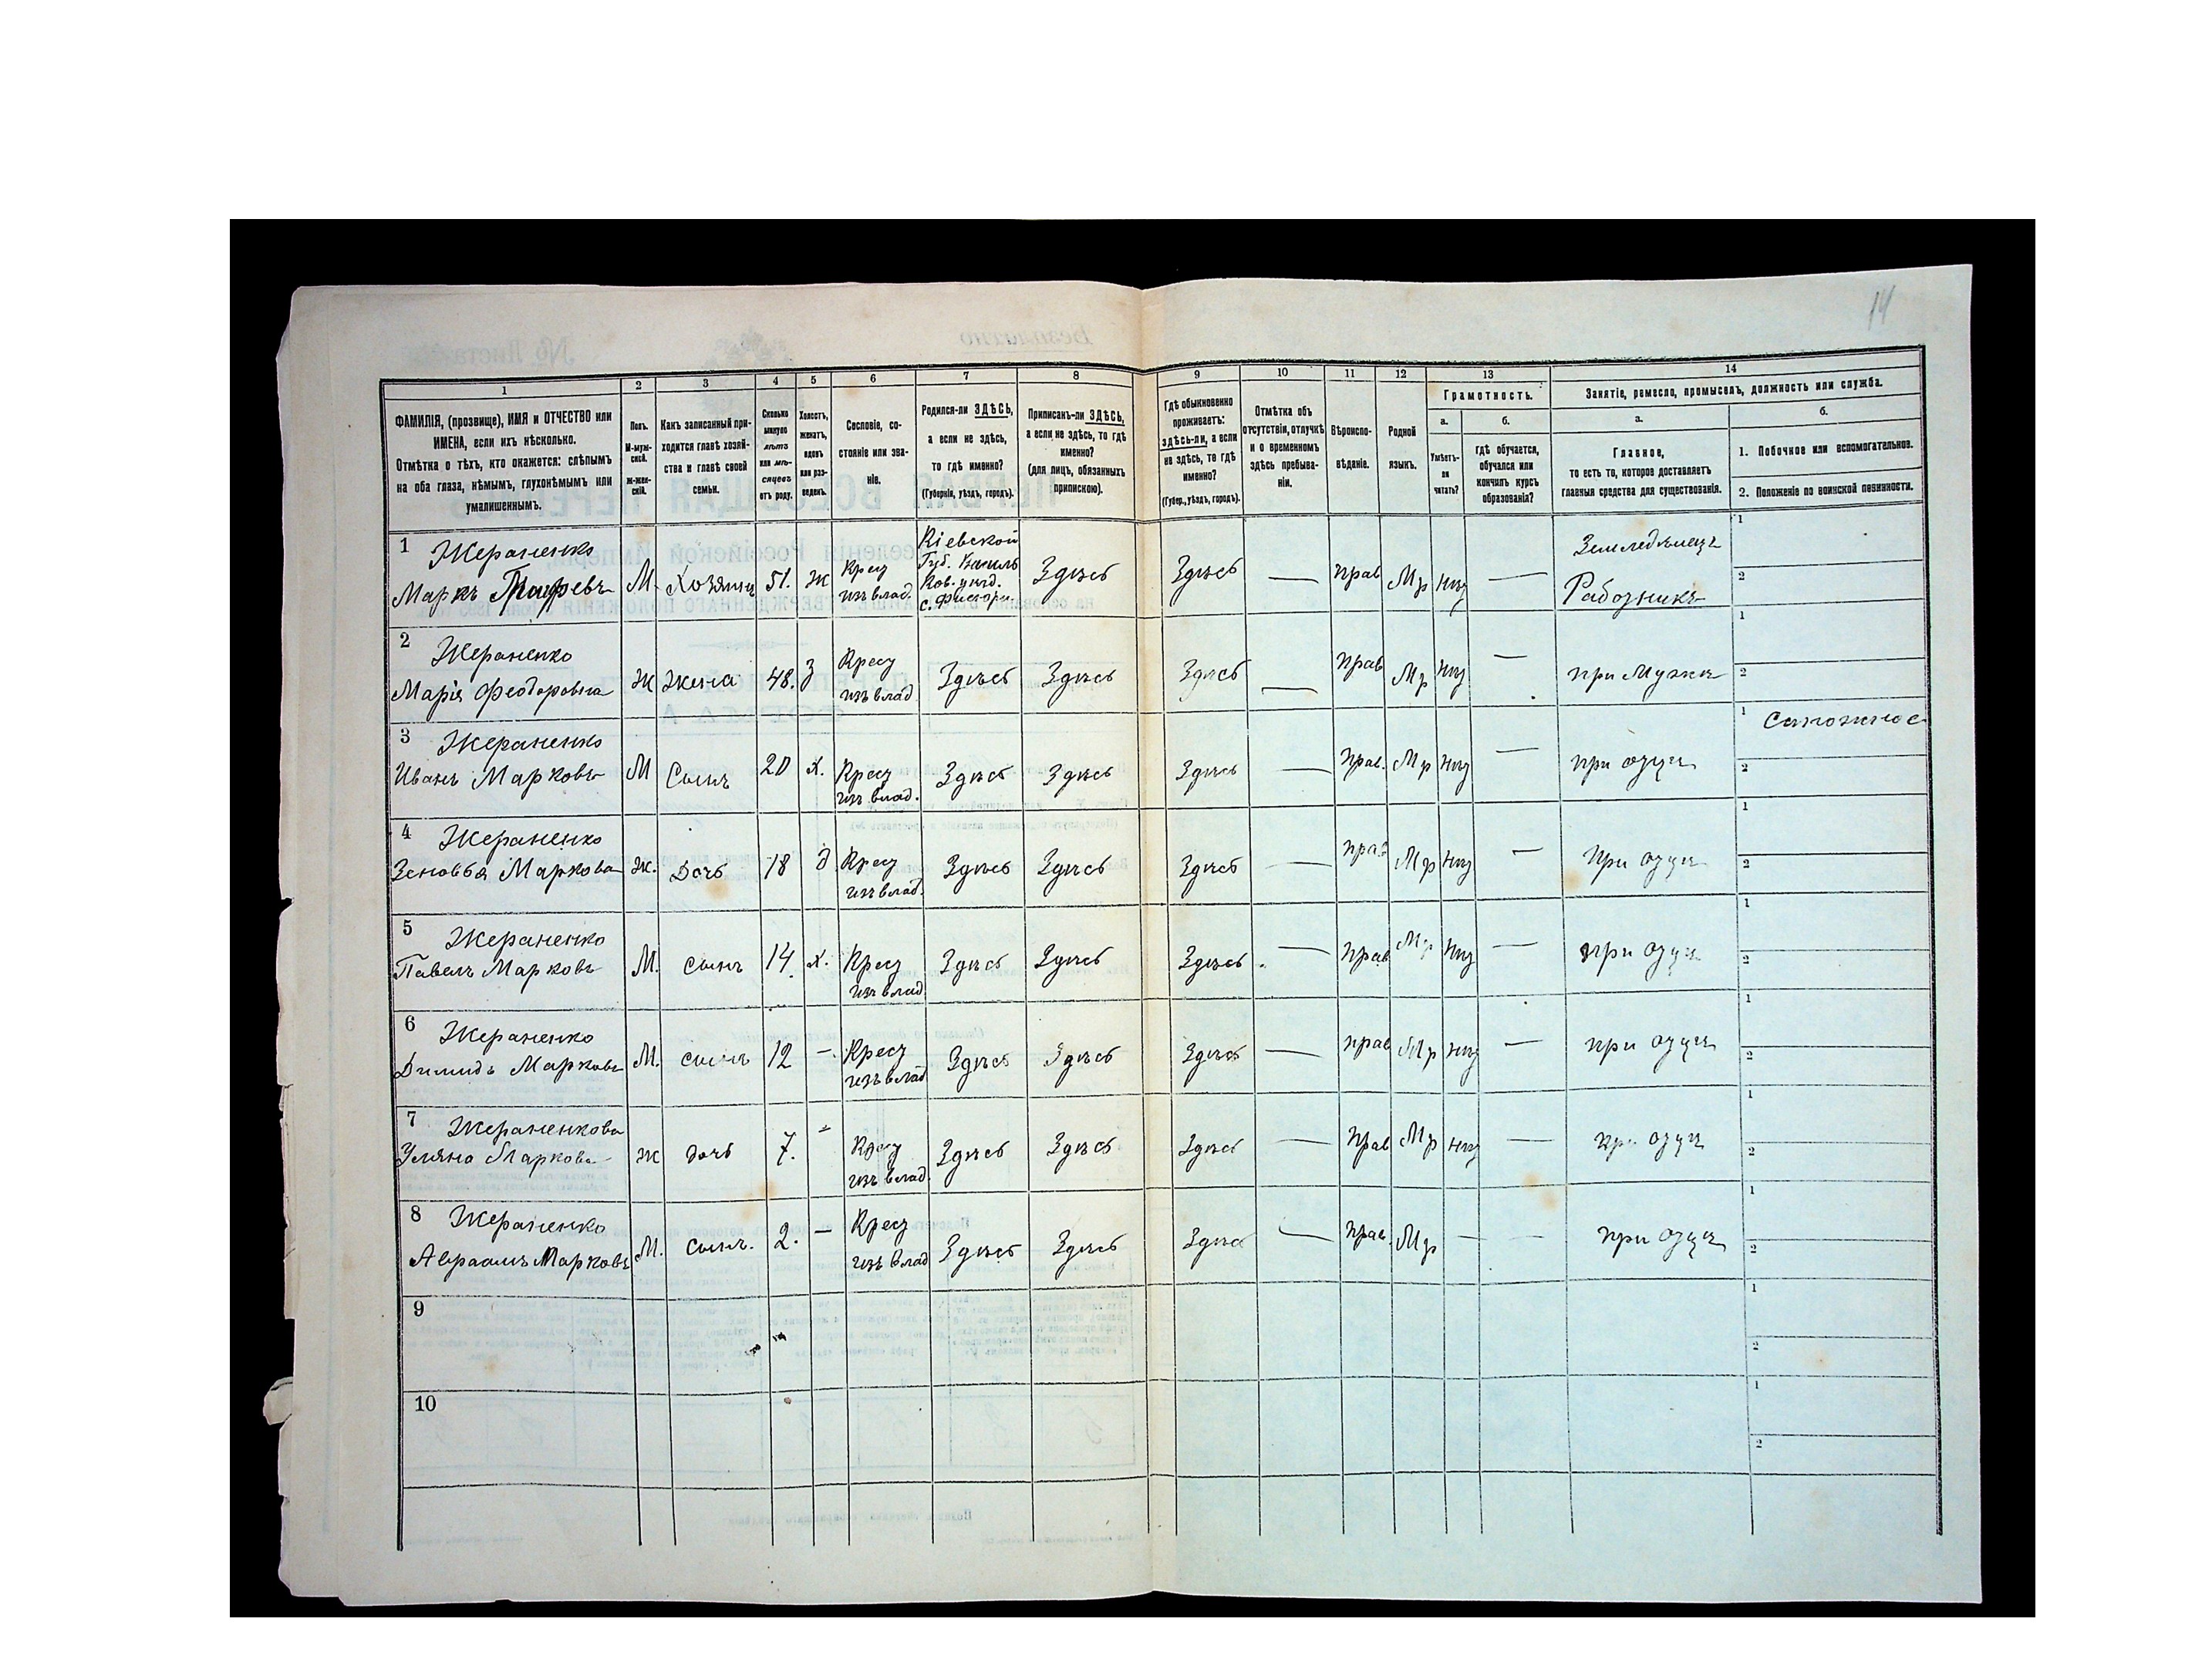 14
1 2 3 4 5 6 7 8 9 10 11 12 13 14
ФАМИЛІЯ, (прозвище), ИМЯ и ОТЧЕСТВО или
ИМЕНА, если ихъ нѣсколько.
Отмѣтка о тѣхъ, кто окажется: слѣпымъ
на оба глаза, нѣмымъ, глухонѣмымъ или
умалишеннымъ.
Полъ.
М-муж-
ской.
Ж-жен-
скій.
Какъ записанный при-
ходится главѣ хозяй-
ства и главѣ своей
семьи.
Сколько
минуло
лѣтъ
или мѣ-
сяцевъ
отъ роду.
Холостъ,
женатъ,
вдовъ
или раз-
веденъ.
Сословіе, со-
стояніе или зва-
ніе.
Родился-ли ЗДѢСЬ,
а если не здѣсь,
то гдѣ именно?
(Губернія, уѣздъ, городъ).
Приписанъ-ли ЗДѢСЬ,
а если не здѣсь, то гдѣ
именно?
(для лицъ, обязанныхъ
припискою).
Гдѣ обыкновенно
проживаетъ:
здѣсь-ли, а если
не здѣсь, то гдѣ
именно?
(Губер., уѣздъ, городъ).
Отмѣтка объ
отсутствіи, отлучкѣ
и о временномъ
здѣсь пребыва-
ніи.
Вѣроиспо-
вѣданіе.
Родной
языкъ.
Грамотность.
а.
Умѣетъ-
ли
читать?
б.
гдѣ обучается,
обучался или
кончилъ курсъ
образованія?
Занятіе, ремесло, промыселъ, должность или служба.
а.
Главное,
то есть то, которое доставляетъ
главныя средства для существованія.
б.
1. Побочное или вспомогательное.
2. Положеніе по воинской повинности.
1 Жераненко
Маркъ
М. Хозяинъ 51. Ж Крест
изъ влад.
Кіевской
Губ. Василь
Ков. уѣзд.
Здѣсь Здѣсь — прав Мр нѣт —
Земледѣлецъ
Работникъ
1
2
2 Жераненко
Марія Феодоровна Ж Жена 48. З Крест
изъ влад Здѣсь Здѣсь Здѣсь — прав Мр нѣт — при Мужѣ
1
2
3 Жераненко
Иванъ Марковъ М Сынъ 20 х. Крест
изъ влад. Здѣсь Здѣсь Здѣсь — Прав. Мр нѣт — при отцѣ
1 Сапожное
2
4 Жераненко
Зеновья Маркова Ж. Дочь 18 д Крест
изъ влад. Здѣсь Здѣсь Здѣсь — прав Мр нѣт — при отцѣ
1
2
5 Жераненко
Павелъ Марковъ М. сынъ 14. х. Крест
изъ влад Здѣсь Здѣсь Здѣсь. — прав Мр нѣт — при отцѣ
1
2
6 Жераненко
Димидъ Марковъ М. сынъ 12 — Крест
изъ влад Здѣсь Здѣсь Здѣсь — прав Мр нѣт — при отцѣ
1
2
7 Жераненкова
Уляна Маркова Ж дочь 7. — Крест
изъ влад. Здѣсь Здѣсь Здѣсь — прав Мр нѣт — при отцѣ
1
2
8 Жераненко
Авраамъ Марковъ М. сынъ. 2. — Крест
изъ влад Здѣсь Здѣсь Здѣсь — прав. Мр — — при отцѣ
1
2
9
1
2
10
1
2